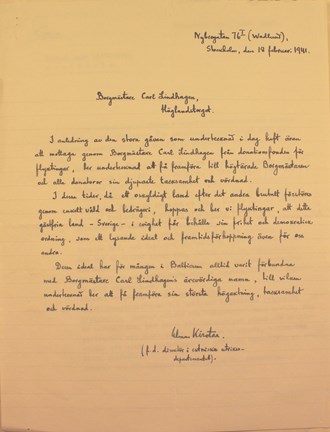 Nybrogatan 76 I (Wedlund),
Stockholm, den 19 februari 1941.
Borgmästare Carl Lindhagen,
Höglandstorget.
I anledning av den stora gåvan som undertecknad i dag haft äran
att mottaga genom Borgmästare Carl Lindhagen från donationsfonden för
flyktingar, ber undertecknad att få framföra till högtärade Borgmästaren
och alla donatorer sin djupaste tacksamhet och vördnad.
I dessa tider, då ett oskyldigt land efter det andra brutalt förstöres
genom envist våld och bedrägeri, hoppas och ber vi flyktingar, att detta
gästfria land - Sverige - i evighet får behålla sin frihet och demokratiska
ordning, som ett lysande ideal och framtidsförhoppning även för oss
andra.
Dessa ideal har för många i Balticum alltid varit förbundna
med Borgmästare Carl Lindhagens ärevördiga namn, till vilken
undertecknad ber att få framföra sin största högaktning, tacksamhet
och vördnad.
(f. d. direktör i estniska utrikes-
departementet).